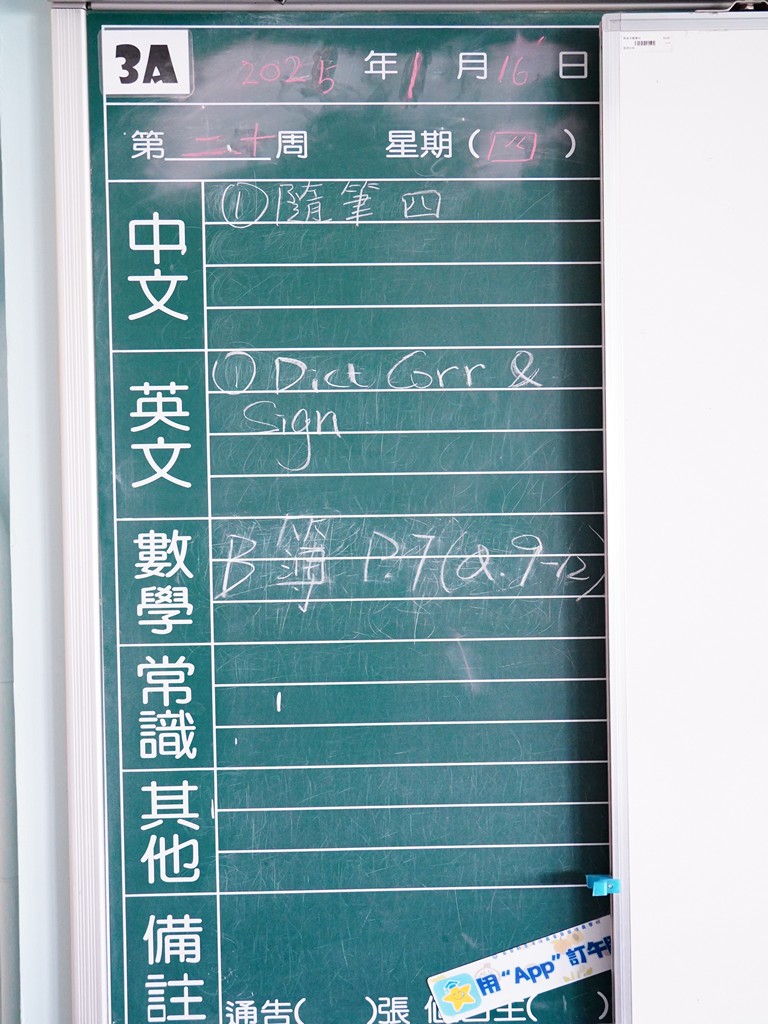 3A
2025 年 1 月 16 日
第 二十 周 星期 ( 四 )
中文 ① 隨筆四
英文 ① Dict Corr &
Sign
數學 B簿 P.7 (Q.9-12)
常識
其他
備註
用 "App" 訂午
通告( )張